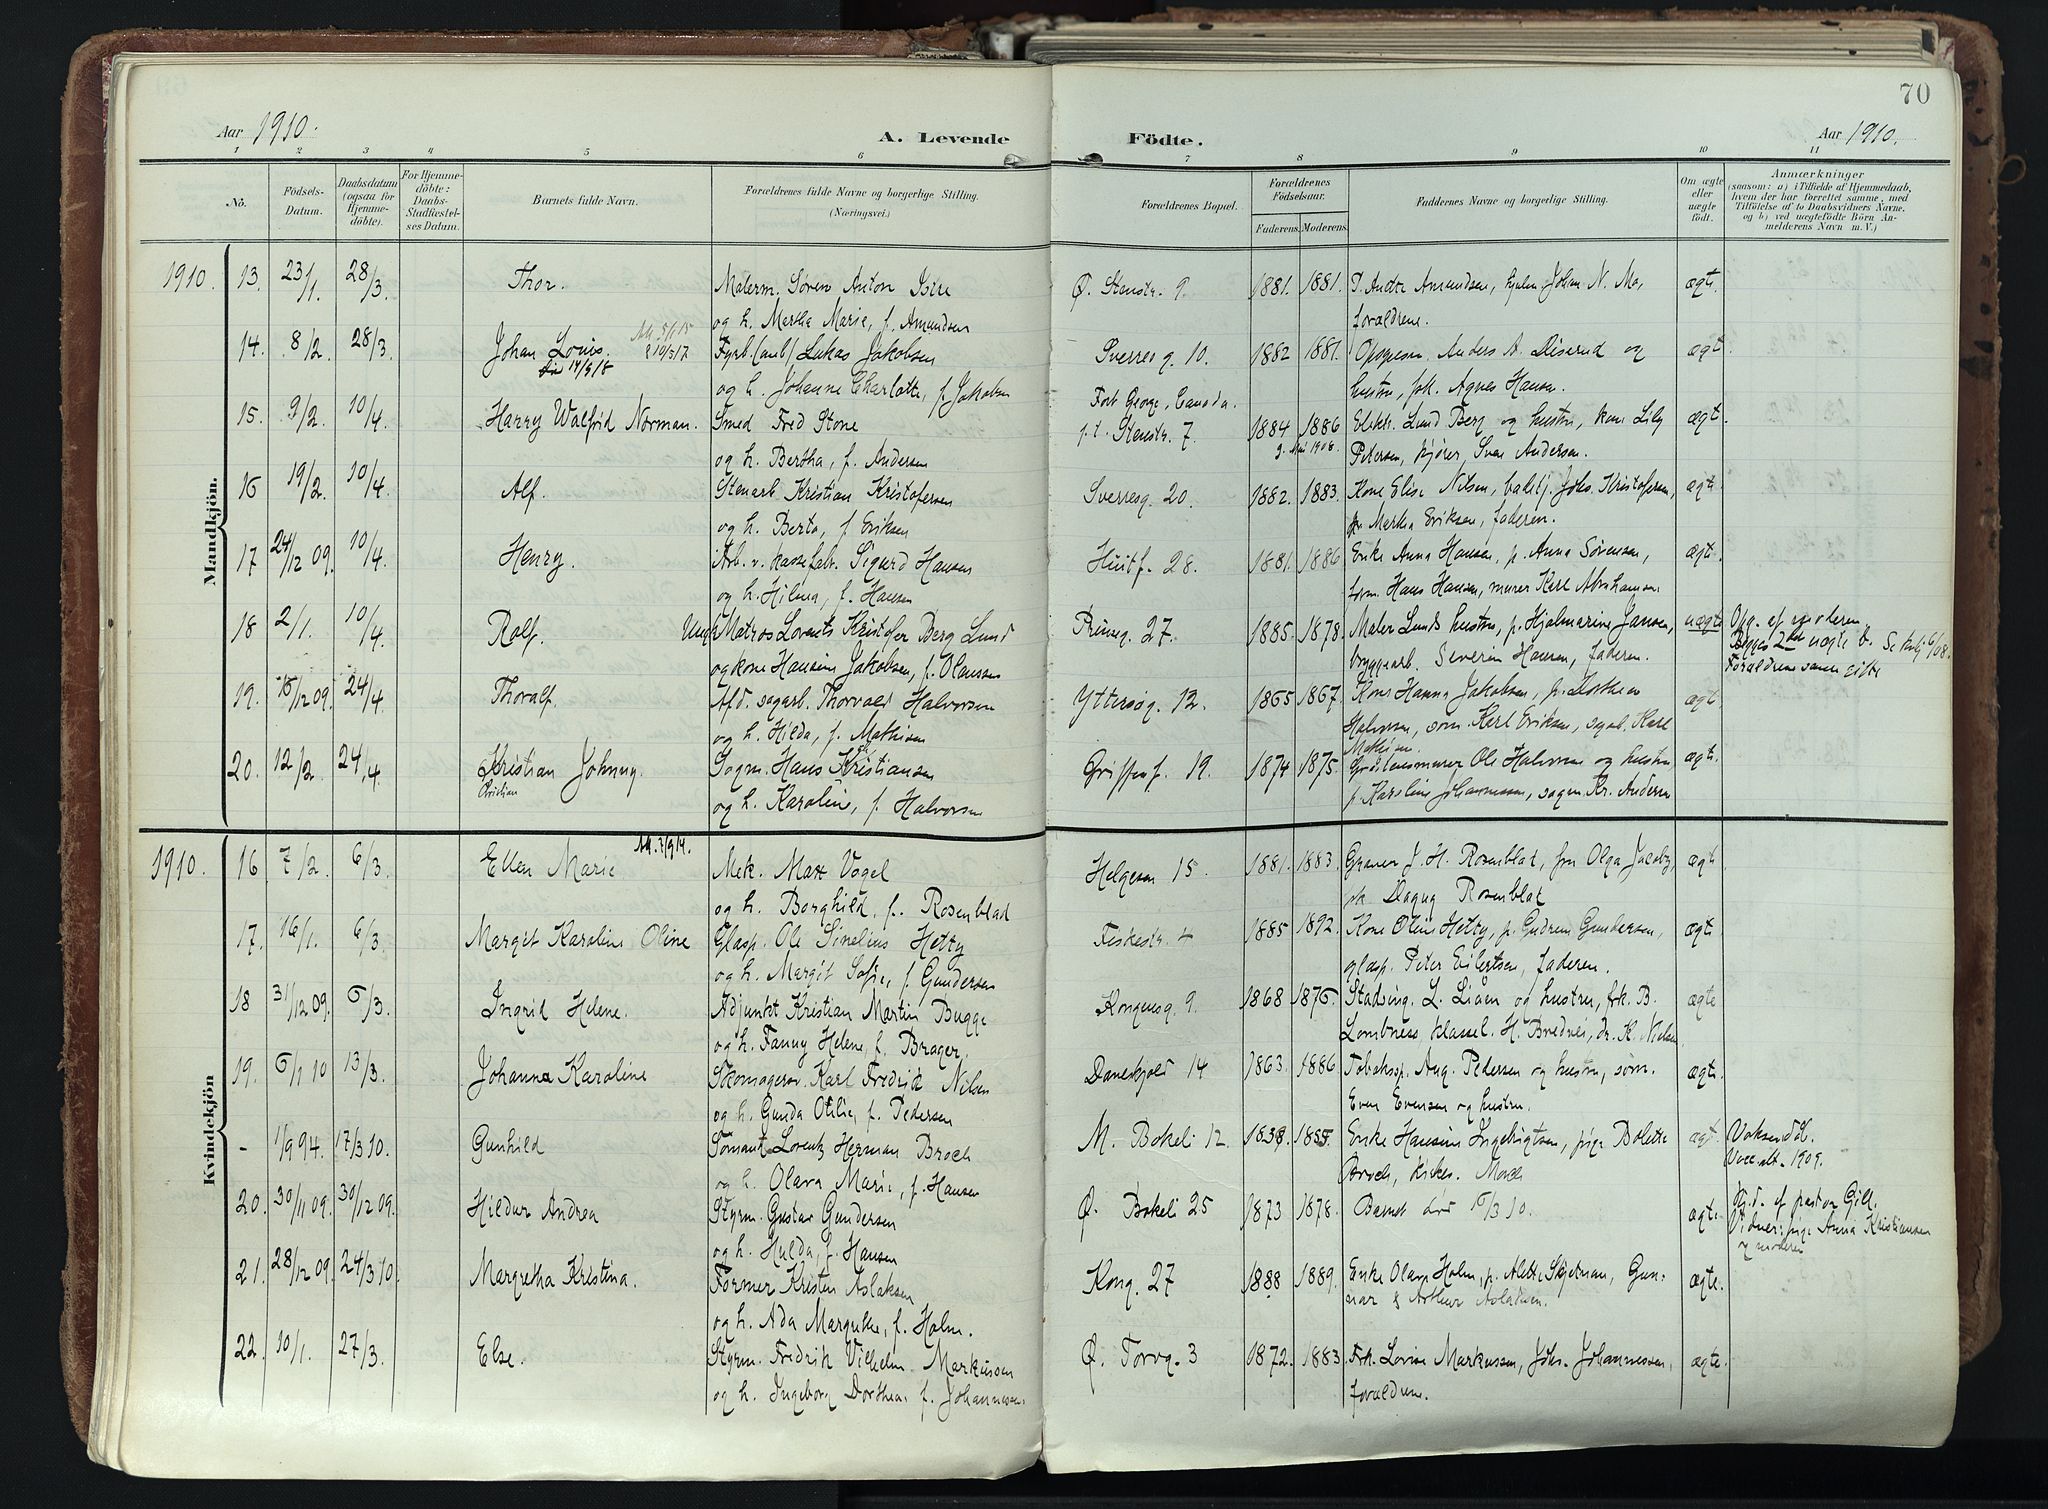 70
Aar 1910.
A. Levende Födte.
Aar 1910.
1 2 3 4 5 6 7 8 9 10 11
No.
Födsels-Datum.
Daabsdatum (ogsaa for Hjemmedöbte).
For Hjemmedöbte: Daabs-Stadfæstelses Datum.
Barnets fulde Navn.
Forældrenes fulde Navne og borgerlige Stilling.
(Næringsvei.)
Forældrenes Bopæl.
Forældrenes Födselsaar.
Faderens. Moderens.
Faddernes Navne og borgerlige Stilling.
Om ægte eller uægte födt.
Anmærkninger
(saasom: a) i Tilfælde af Hjemmedaab, hvem der har forrettet samme, med Tilföielse af to Daabsvidners Navne, og b) ved uægtefödte Börn Anmelderens Navn m. V.)
Mandkjön.
1910. 13. 23/1. 28/3. Thor. Malerm. Søren Anton Isre Ø. Stenstr. 9. 1881. 1881. ægte.
og h. Martha Marie, f. Amundsen forældrene.
14. 8/2. 28/3. Johan Louis. Fyrb. (anb) Lukas Jakobsen Sverresg. 10. 1882 1881. Anders A. Diserud og ægt.
og h. Johanne Charlotte, f. Jakobsen hustru, frk. Agnes Hansen.
Fort George, Canada.
15. 9/2. 10/4. Harry Walfrid Norman. Smed Fred Stone p.t. Stenstr. 7. 1884 1886 Elektr. Lund Berg og hustru, kone Lily ægt.
og h. Bertha, f. Andersen Petersen, kjører Sven Andersen.
16 19/2. 10/4. Alf. Stenarb. Kristian Kristofersen Sverresg. 20. 1882. 1883. Kone Elise Nilsen, Johs. Kristofersen, ægte
og h. Berta, f. Eriksen p. Martha Eriksen, faderen.
17 24/12 09. 10/4. Henry. Arb. v. kassefabr. Sigurd Hansen Huitf. 28. 1881. 1886 Enke Anna Hansen, p. Anna Sørensen, ægte
og h. Hilma, f. Hansen form. Hans Hansen, murer Karl Abrahamsen
18 2/1. 10/4. Rolf. Matros Lorents Kristofer Berg Lund Prinsg. 27. 1885. 1878. Maler Lunds hustru, p. Hjalmarine Jansen, uægte Opg. af moderen
og kone Hansine Jakobsen, f. Olaussen bryggearb. Severin Hansen, faderen. Begges 2det uægte b.
Forældrene samm. gifte
19. 15/12 09. 24/4. Thoralf. Afd. sagarb. Thorvald Halvorsen Yttersøg. 12. 1865 1867. Kone Hanna Jakobsen, p. Dorthea ægt.
og h. Hilda, f. Mathisen Halvorsen, Karl Eriksen, sagarb. Karl
Mathisen.
20. 12/2 24/4. Kristian Johnny. Sogm. Hans Kristiansen Griffenf. 19. 1874 1875. Gravstensmurer Ole Halvorsen og hustru ægte.
Christian
og h. Karoline, f. Halvorsen p. Karoline Johannessen, Kr. Andersen
Kvindekjön
1910. 16 7/2 6/3. Ellen Marie Mek. Max Vogel Helgesen 15. 1881. 1883. Graver J. H. Rosenblat, fru Olga Jacoby, ægte
og h. Borghild, f. Rosenblad Dagny Rosenblat
17. 16/1. 6/3. Margit Karoline Oline Glasp. Ole Sinelius Hetty Fiskestr. 4 1885 1892. Kone Olin Hetty, p. Gudrun Gundersen, ægte
og h. Margit Sofie, f. Gundersen glasp. Peter Eilertsen, faderen.
18 31/12 09. 6/3. Ingrid Helene. Adjunkt Kristian Martin Bugge Kongensg. 9. 1868 1876. Stadsing. L. Liaen og hustru, frk. B. ægte
og h. Fanny Helene, f. Brager. H. Bredvei, dr. K. Nielsen
19. 6/1 10 13/3. Johanna Karoline Skomagersv. Karl Fredrik Nilsen Daneskjold 14 1863. 1886 Tobakssp. Aug. Pedersen og hustru, søm. ægte.
og h. Gunda Otilie, f. Pedersen Even Evensen og hustru.
- 1/9 94. 17/3 10. Gunhild Sømand Lorentz Herman Broch M. Bakeli 12 1838. 1855. Enke Hansine Ingebrigtsen, pige Bolette ægt. Voksend.
og h. Olava Marie, f. Hansen Broch, Moeck Vacc.att. 1909.
20. 30/11 09. 30/12 09. Hildur Andrea Styrm. Gustav Gundersen Ø. Bakeli 25 1873 1878. Barnet død 6/3 10. ægte. Hjd. af pastor Gill.
og h. Hulda, f. Hansen Vidner: pige Anna Kristiansen og moderen
21. 28/12 09. 24/3 10. Margretha Kristina. Former Kristen Aslaksen Kong. 27 1888 1889. Enke Olava Holm, p. Alette Skjetman, Gun- ægte.
og h. Ada Margrethe, f. Holm. nar & Arthur Aslaksen.
22. 10/1. 27/3. Else. Styrm. Fredrik Vilhelm Markussen Ø. Torvg. 3 1872. 1883. Frk. Lovise Markussen, Johs. Johannessen, ægte.
og h. Ingeborg Dorthea. f. Johannessen. forældrene.